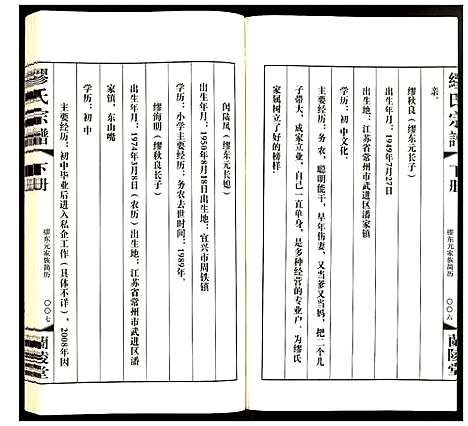 亲。
缪秋良（缪东元长子）
出生年月：1949年7月27日
出生地：江苏省常州市武进区潘家镇
学历：初中文化。
主要经历：务农，聪明能干，早年伤妻，又当爹又当妈，把二个儿
子带大，成家立业，自己一直单身，是多种经营的专业户，为缪氏
家属树立了好的榜样。
缪氏宗譜
下册
缪东元家族简历
〇〇六
蘭陵堂
缪氏宗譜
下册
缪东元家族简历
〇〇七
蘭陵堂
闵陆凤（缪东元长媳）
出生年月：1950年8月18日出生地：宜兴市周铁镇
学历：小学主要经历：务农去世时间：1989年。
缪海明（缪秋良长子）
出生年月：1974年3月8日（农历）出生地：江苏省常州市武进区潘
家镇，东山嘴
学历：初中
主要经历：初中毕业后进入私企工作（具体不详），2008年因